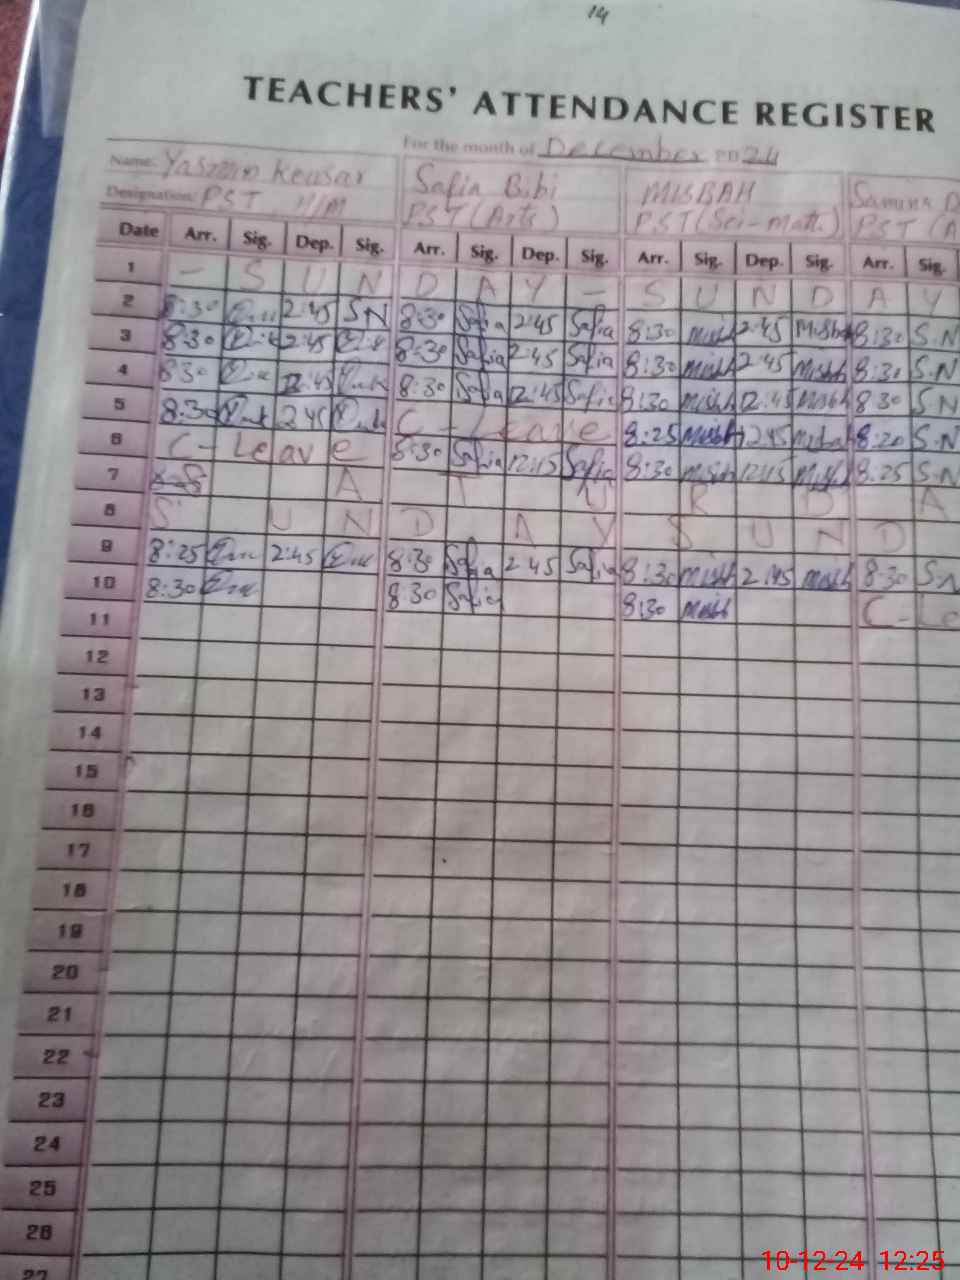 14
TEACHERS' ATTENDANCE REGISTER
For the month of December 2024
Name: Yasmin Kousar Safia Bibi MISBAH Samina
Designation: PST H/M PST (Arts) PST (Sci-math.) PST (A
Date Arr. Sig. Dep. Sig. Arr. Sig. Dep. Sig. Arr. Sig. Dep. Sig. Arr. Sig.
1 - S U N D A Y - S U N D A Y
2 8:30 2:45 SN 8:30 Safia 2:45 Safia 8:30 Misb 2:45 Misbah 8:30 S.N
3 8:30 2:45 8:30 Safia 2:45 Safia 8:30 Misbh 2:45 Misbh 8:30 S.N
4 8:30 2:45 8:30 Safia 2:45 Safia 8:30 Misbh 2:45 Misbh 8:30 S.N
5 8:30 2:45 C - Leave 8:25 Misbh 2:45 Misbah 8:20 S.N
6 C - Leave 8:30 Safia 12:15 Safia 8:30 Misbh 12:15 Misbh 8:25 S.N
7 S A T U R D A
8 S U N D A Y S U N D
9 8:25 2:45 8:30 Safia 2:45 Safia 8:30 Misbh 2:45 Misbh 8:30 SN
10 8:30 8:30 Safia 8:30 Misbh C - Le
11
12
13
14
15
16
17
18
19
20
21
22
23
24
25
26
27
10-12-24 12:25